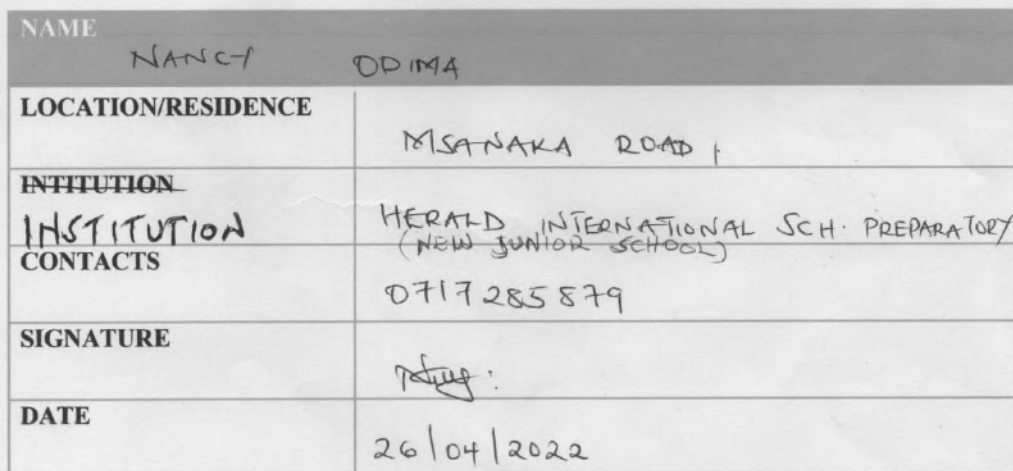 NAME
NANCY ODIMA
LOCATION/RESIDENCE
MSANAKA ROAD,
INTITUTION
INSTITUTION
HERALD INTERNATIONAL SCH. PREPARATORY
(NEW JUNIOR SCHOOL)
CONTACTS
0717285879
SIGNATURE
DATE
26/04/2022